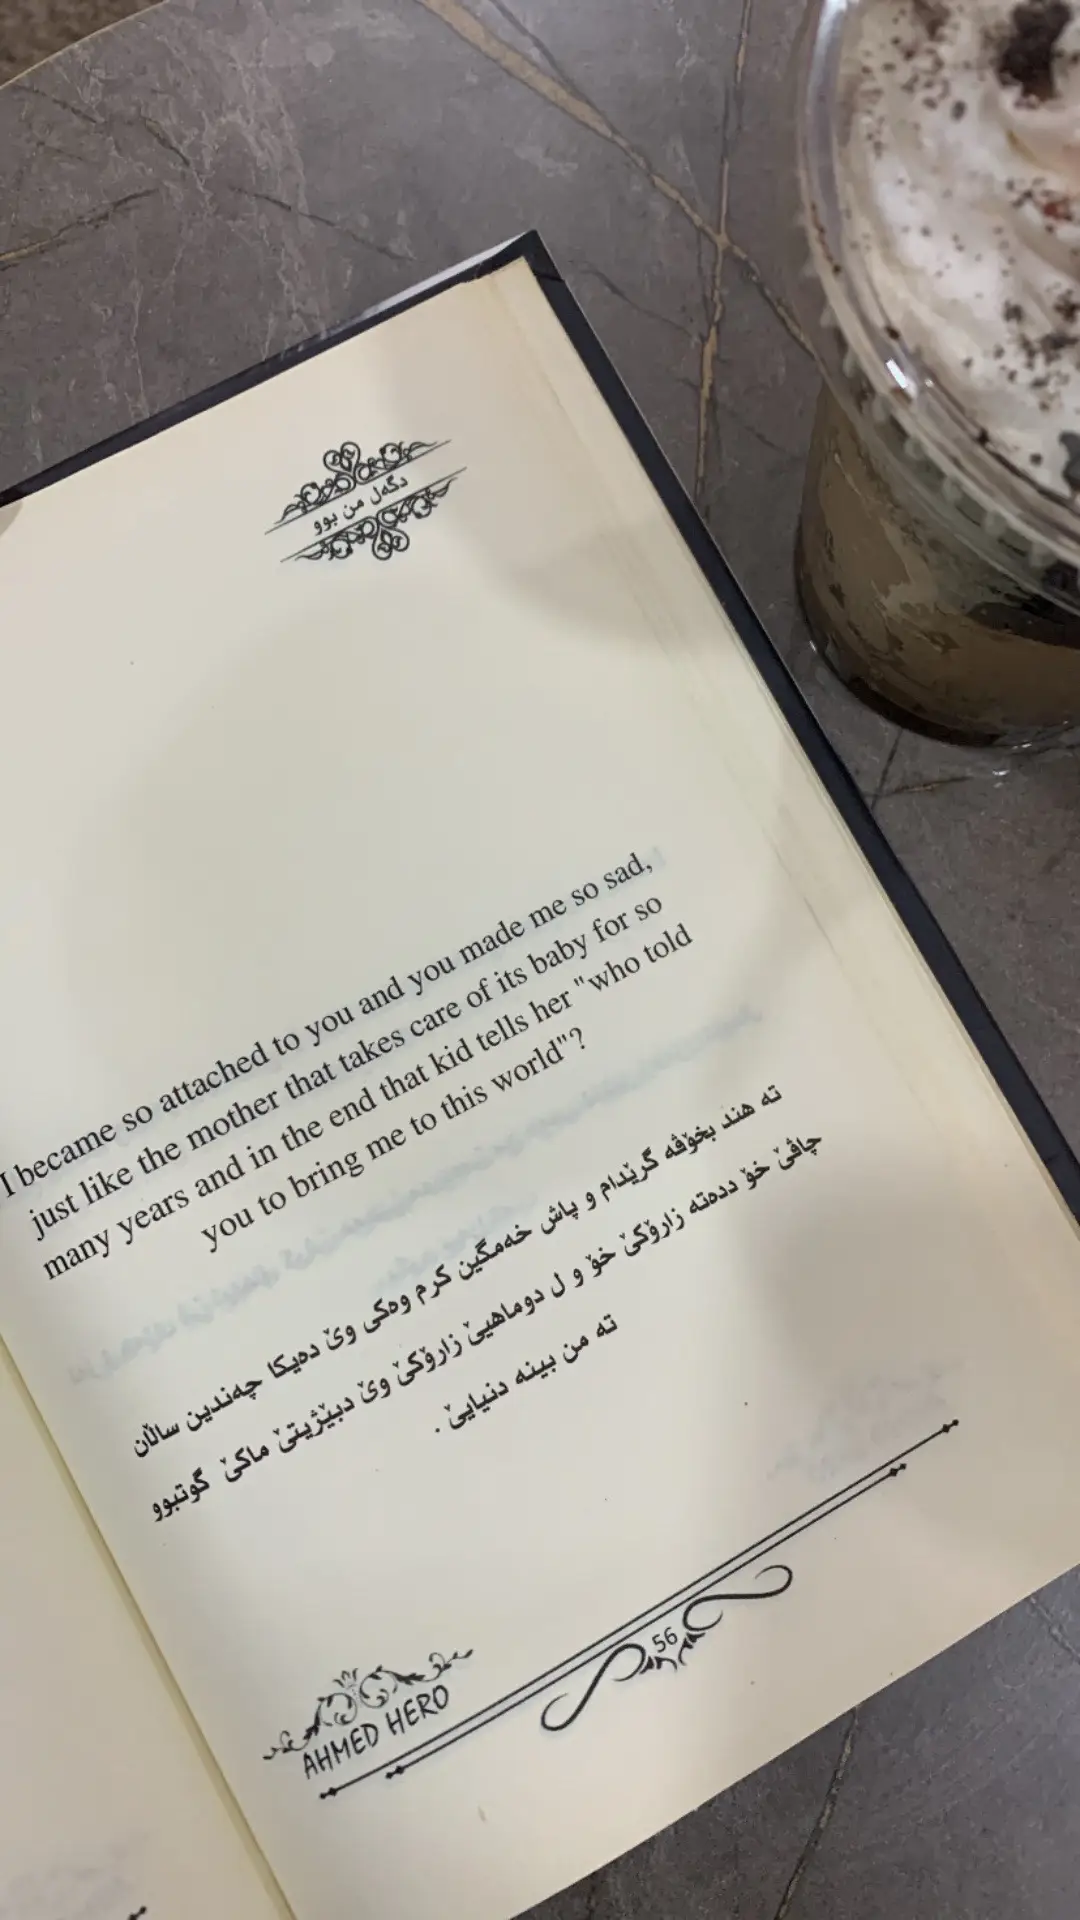 دگەل من بوو
I became so attached to you and you made me so sad,
just like the mother that takes care of its baby for so
many years and in the end that kid tells her "who told
you to bring me to this world"?
تە هند بخۆڤە گرێدام و پاش خەمگین کرم وەکی وێ دەیکا چەندین ساڵان
چاڤێ خۆ ددەتە زارۆکێ خۆ و ل دوماهیێ زارۆکێ وێ دبێژیتێ ماکێ گوتبوو
تە من بینە دنیایێ .
56
AHMED HERO